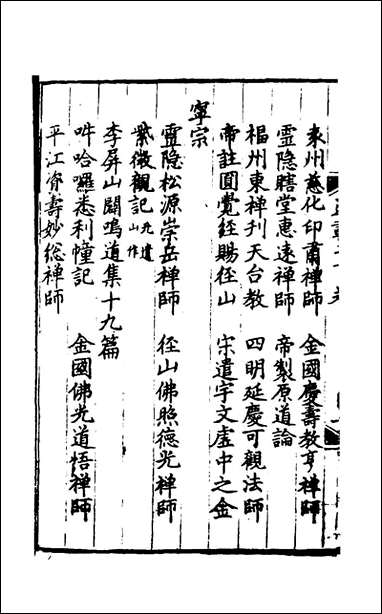 袁州慈化印肅禪師　金國慶壽教亨禪師
靈隱瞎堂惠遠禪師　帝製原道論
福州東禪刊天台教　四明延慶可觀法師
帝註圓覺經賜徑山　宋遣宇文虛中之金
寧宗
靈隱松源崇岳禪師　徑山佛照德光禪師
紫微觀記元遺山作
李屏山闢鳴道集十九篇
吽哈囉悉利幢記　金國佛光道悟禪師
平江資壽妙総禪師